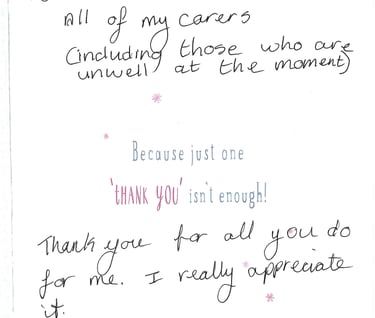 All of my carers
(including those who are
unwell at the moment)
Because just one
'THANK YOU' isn't enough!
Thank you for all you do
for me. I really appreciate
it.